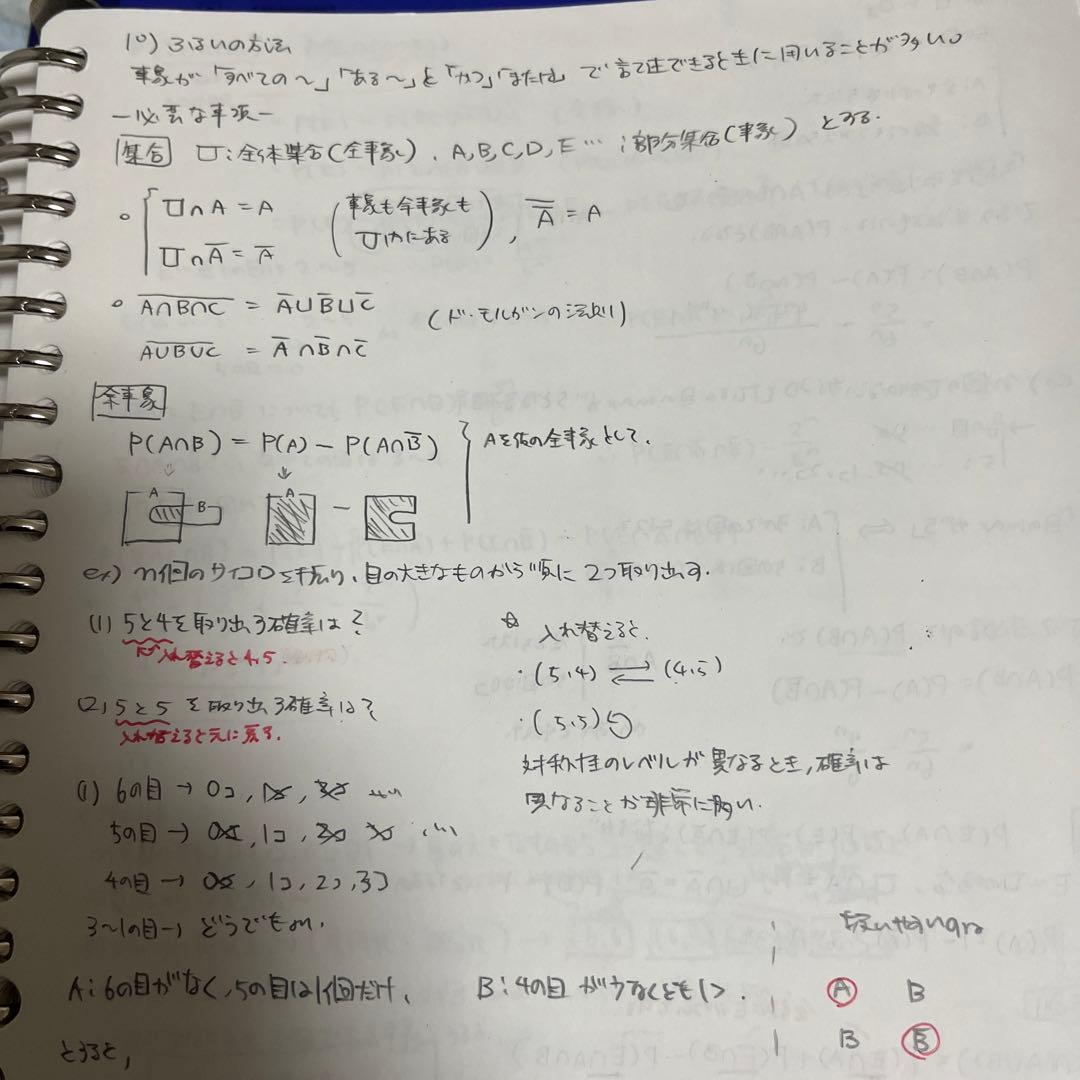 1°) ふるいの方法
事象が「すべての〜」「ある〜」と「かつ」「または」で言できるときに用いることが多い。
―必要な事項―
集合 U:全体集合(全事象)、A,B,C,D,E…;部分集合(事象)とする.
○ U∩A = A (事象も全事象も), \overline{\overline{A}} = A
U∩\overline{A} = \overline{A} (U内にある)
○ \overline{A∩B∩C} = \overline{A}∪\overline{B}∪\overline{C} (ド・モルガンの法則)
\overline{A∪B∪C} = \overline{A}∩\overline{B}∩\overline{C}
余事象
P(A∩B) = P(A) − P(A∩\overline{B}) } Aを仮の全事象として.
A B A −
ex) n個のサイコロを振り、目の大きなものから順に2つ取り出す.
(1) 5と4を取り出す確率は?
入れ替えると4,5.
(2) 5と5を取り出す確率は?
入れ替えると元に戻る.
☆ 入れ替えると.
・(5,4) ⇄ (4,5)
・(5,5)↺
対称性のレベルが異なるとき,確率は
異なることが非常に多い.
(1) 6の目 → 0コ, 1コ, 2コ …
5の目 → 0コ, 1コ, 2コ 3コ …
4の目 → 0コ, 1コ, 2コ, 3コ
3〜1の目→ どうでもいい.
A:6の目がなく,5の目は1個だけ、 B:4の目が少なくとも1つ.
とすると,
A B
B \overline{B}